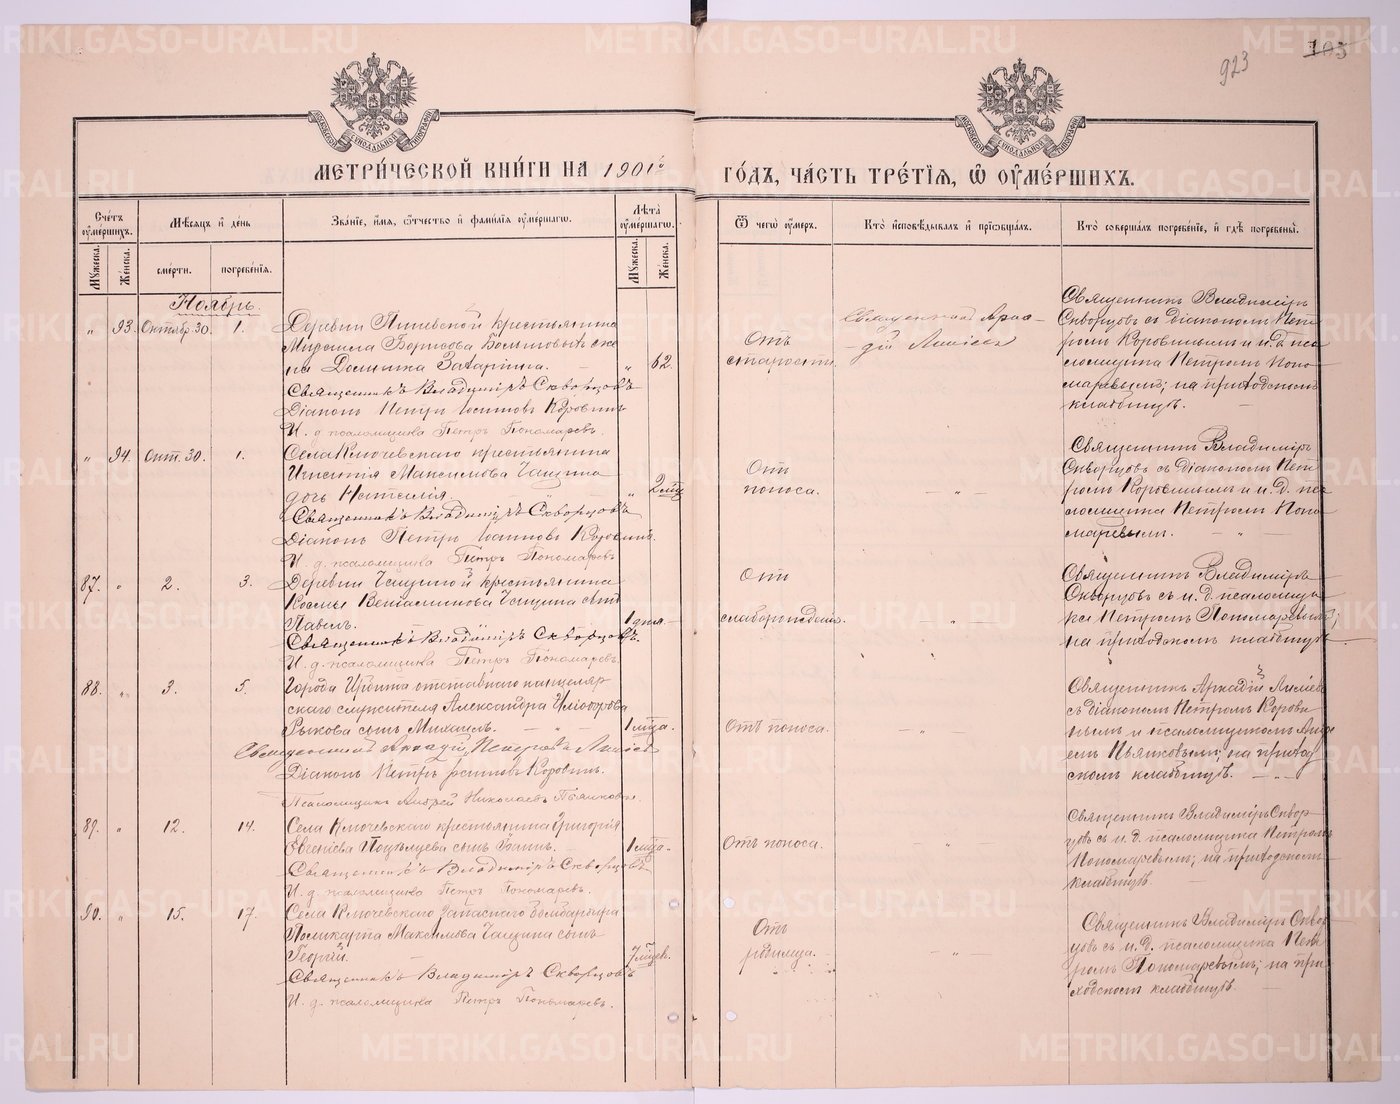 923
105
МЕТРИ́ЧЕСКОЙ КНИ́ГИ НА 1901й
ГО́ДЪ, ЧА́СТЬ ТРЕ́ТІѦ, Ѿ ОУМЕ́РШИХЪ.
Сче́тъ оуме́ршихъ.
Мꙋжеска.
Же́нска.
Мѣсѧцъ и҆ де́нь
сме́рти.
погребе́нїѧ.
Зва́нїе, и҆́мѧ, ѻ҆́тчество и҆ фами́лїѧ оуме́ршагѡ.
Лѣ́та оуме́ршагѡ.
Мꙋжеска.
Же́нска.
Ѿ чегѡ̀ оу́меръ.
Кто̀ и҆сповѣ́дывалъ и҆ прїѡбща́лъ.
Кто̀ соверша́лъ погребе́нїе, и҆ гдѣ̀ погребены̀.
Ноябрь.
" 93. Октябр 30. 1.
Деревни крестьянина
Михаила Борисова же
на Домника Захаріина. " 62.
Священникъ Владиміръ Скворцовъ
Діаконъ Петръ Іоанновъ Коровинъ
И. д. псаломщика Петръ Пономаревъ.
Отъ
старости
Священникъ Арка-
дій
Священникъ Владиміръ
Скворцовъ съ діакономъ Пет
ромъ Коровинымъ и и. д. пса
ломщика Петромъ Поно
маревымъ; на приходскомъ
кладбищѣ.
" 94. Окт. 30. 1.
Села Ключевского крестьянина
Игнатія Максимова Чащина
дочь Наталія. " 2 мца
Священникъ Владиміръ Скворцовъ
Діаконъ Петръ Іоанновъ Коровинъ.
И. д. псаломщика Петръ Пономаревъ
Отъ
поноса.
- " -
Священникъ Владиміръ
Скворцовъ съ діакономъ Пет
ромъ Коровинымъ и и. д. пса
ломщика Петромъ Поно
маревымъ. - " -
87. " 2. 3.
Деревни Чащиной крестьянина
Космы Веніаминова Чащина сынъ
Павелъ. 1 дня.
Священникъ Владиміръ Скворцовъ.
И. д. псаломщика Петръ Пономаревъ.
Отъ
слаборожденія.
- " -
Священникъ Владиміръ
Скворцовъ съ и. д. псаломщи
ка Петромъ Пономаревымъ;
на приходскомъ кладбищѣ
88. " 3. 5.
Города Ирбита отставного канцеляр
скаго служителя Александра Иліодорова
Рыкова сынъ Михаилъ. - " - 1 мца.
Священникъ Аркадій
Діаконъ Петръ Іоанновъ Коровинъ.
Псаломщикъ Андрей Николаевъ Пьянковъ.
Отъ поноса.
- " -
Священникъ Аркадій
съ діакономъ Петромъ Корови
нымъ и псаломщикомъ Андре
емъ Пьянковымъ; на приход
скомъ кладбищѣ. - " -
89. " 12. 14.
Села Ключевского крестьянина Григорія
Евгеніева сынъ Іоаннъ. 1 мца.
Священникъ Владиміръ Скворцовъ
И. д. псаломщика Петръ Пономаревъ.
Отъ поноса.
"
Священникъ Владиміръ Сквор
цовъ съ и. д. псаломщика Петромъ
Пономаревымъ; на приходскомъ
кладбищѣ
90. " 15. 17.
Села Ключевского запаснаго бомбардира
Поликарпа Максимова Чащина сынъ
Георгій. 7 мцев.
Священникъ Владиміръ Скворцовъ
И. д. псаломщика Петръ Пономаревъ.
Отъ
родимца.
- " -
Священникъ Владиміръ Сквор
цовъ съ и. д. псаломщика Пет
ромъ Пономаревымъ; на при
ходскомъ кладбищѣ.
METRIKI.GASO-URAL.RU